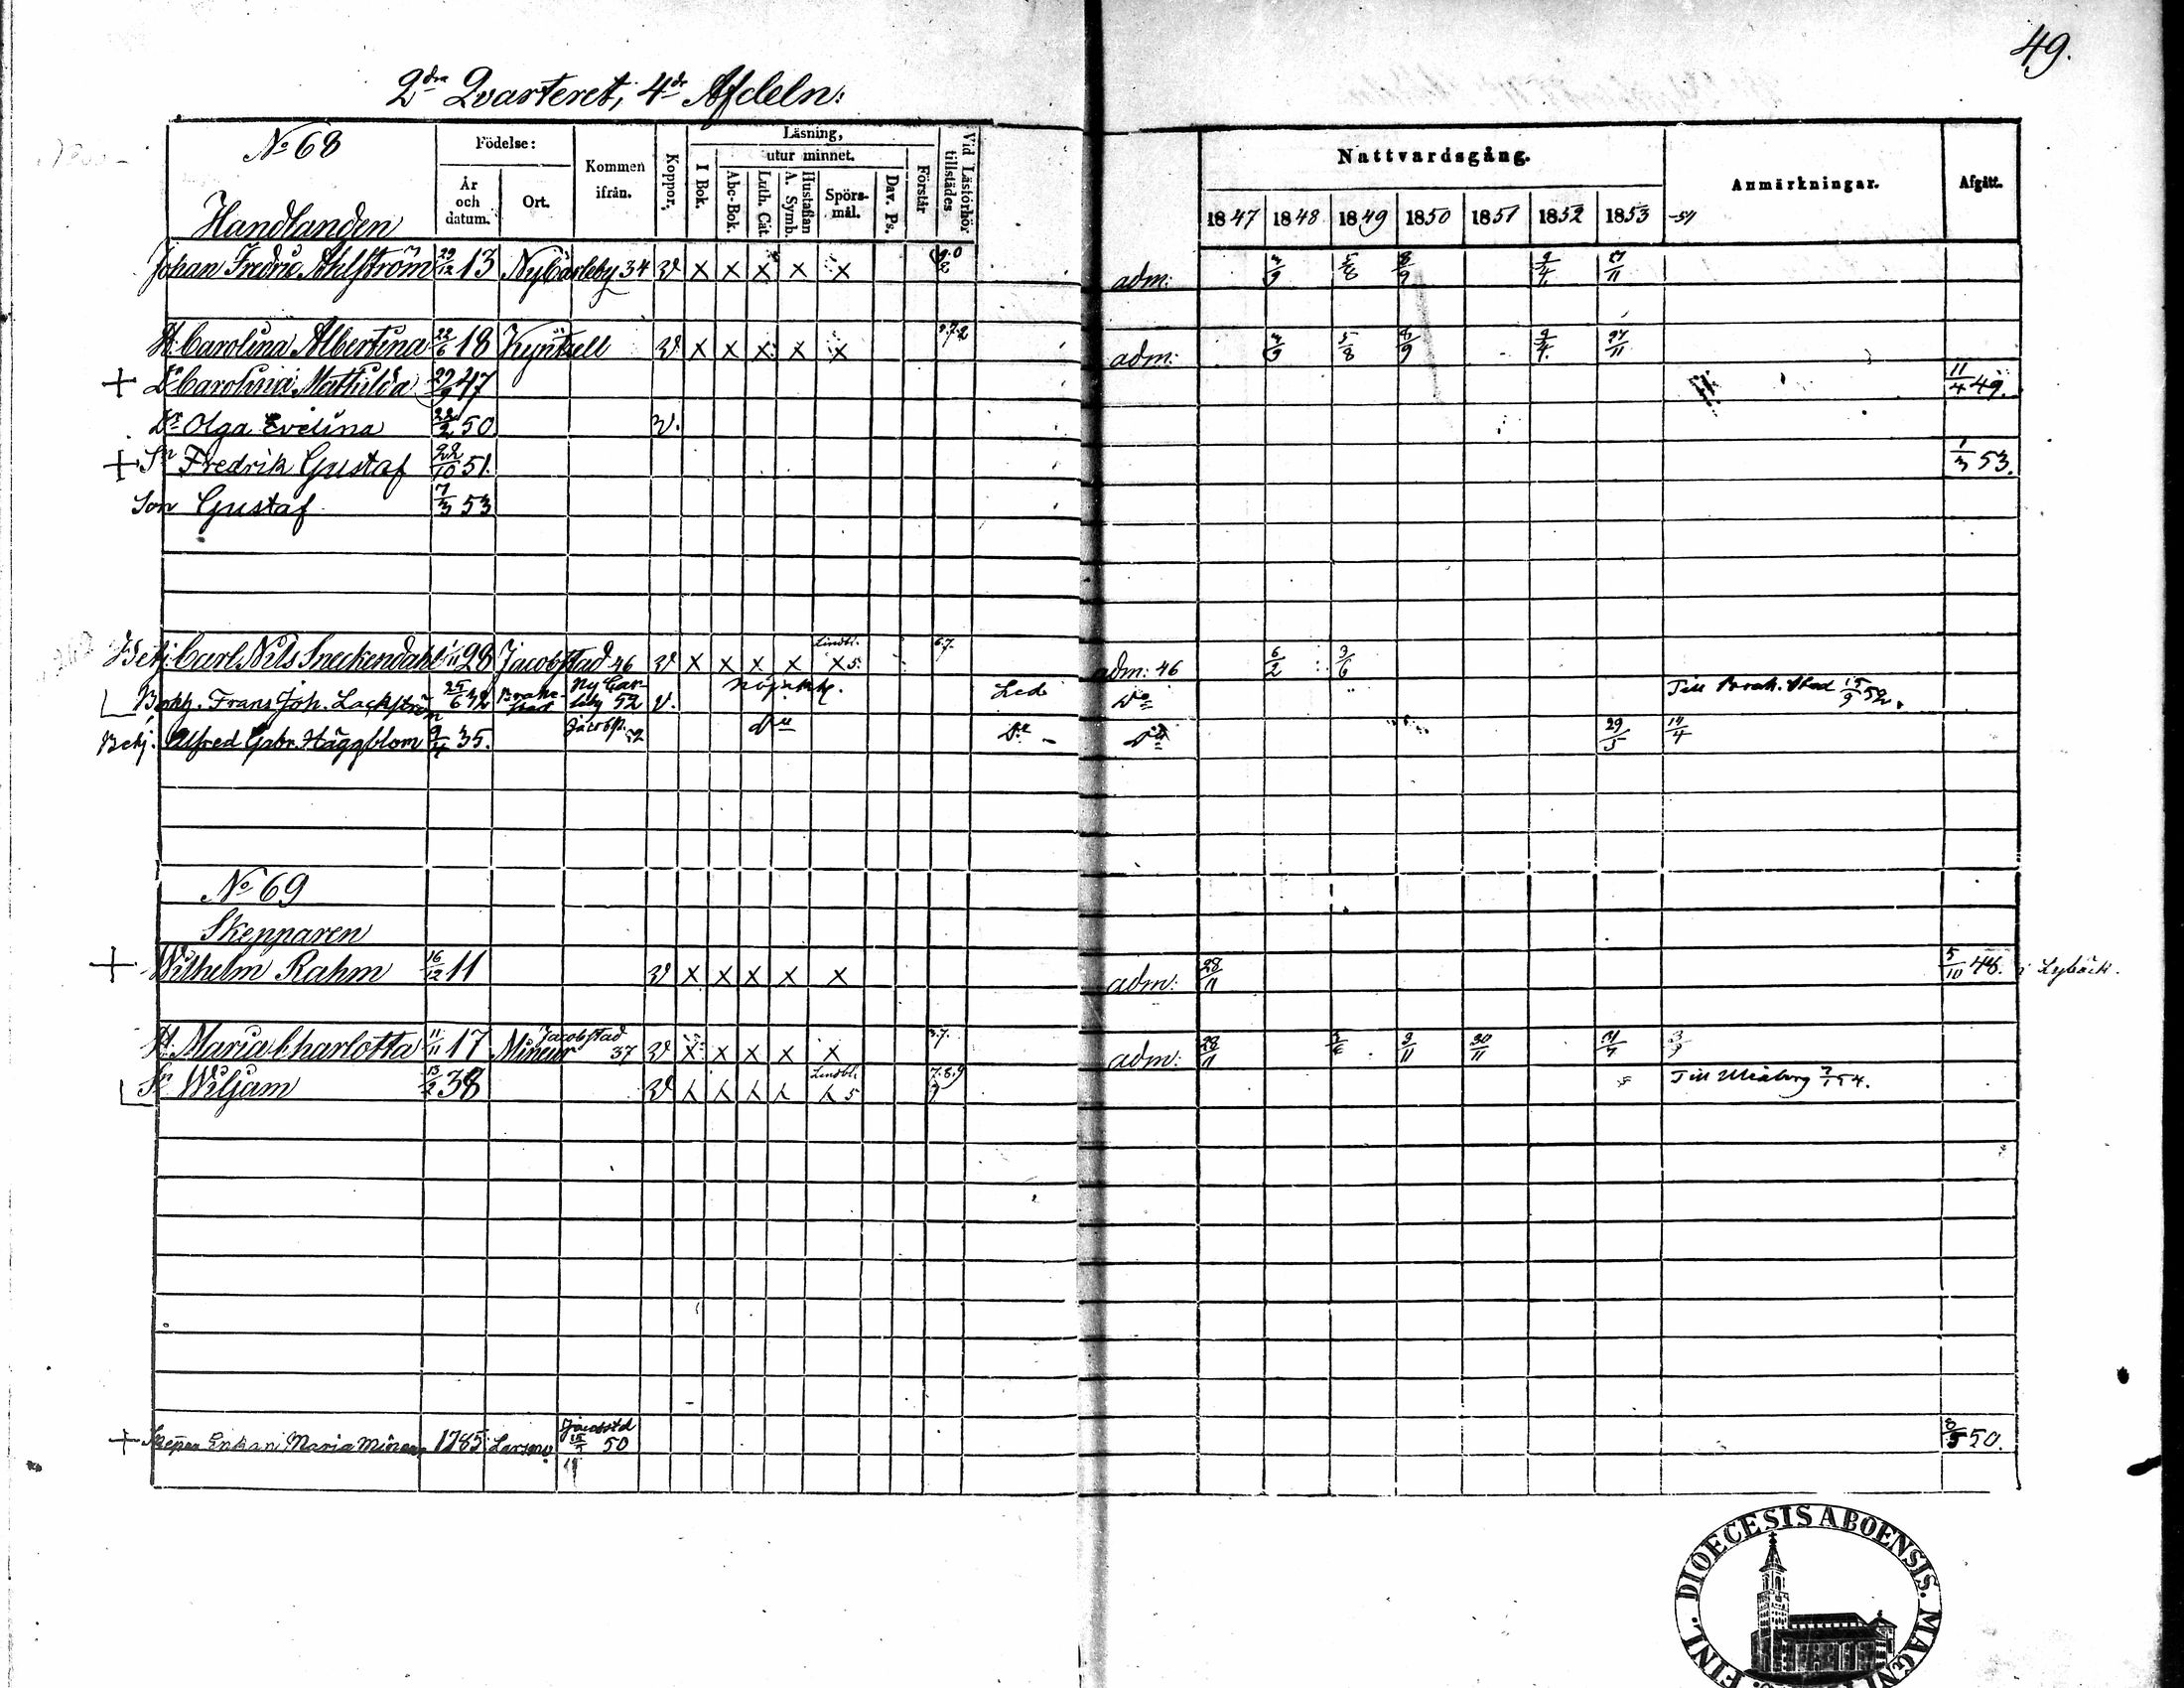 49.
2dra Qvarteret, 4de Afdeln:
No 68
Handlanden
Födelse:
År och datum.
Ort.
Kommen ifrån.
Koppor.
Läsning,
utur minnet.
I Bok.
Abc-Bok.
Luth. Cat.
A. Symb.
Hustaflan
Spörsmål.
Dav. Ps.
Förstår
Vid Läsförhör tillstädes
Nattvardsgång.
1847 1848 1849 1850 1851 1852 1853 -54
Anmärkningar.
Afgått.
Johan Fredric Ahlström 29/12 13 NyCarleby 34 v x x x x x adm: 5/8 8/9 9/4
H. Carolina Albertina 22/6 18 Kyntzell v x x x x x adm: 5/8 9/4
+ Dr Carolina Mathilda 29/9 47 11/4 49.
Dr Olga Evelina 22/2 50 v.
+ Sn Fredrik Gustaf 22/10 51. 1/3 53.
Son Gustaf 7/3 53
Betj. Carl Nils Sneckendahl 1/11 28 Jacobstad 46 v x x x x Lindbl. x 5. 6.7. adm: 46 6/2 3/6
Bokh. Frans Joh. Lackström 25/6 32 Brahestad Ny Carleby 52 v. nöjakt. Led. Do Till Brah. stad 15/9 52.
Betj. Alfred Gabr. Häggblom 9/4 35. Jacobst. 52 Do Do Do 29/5 14/4
No 69
Skepparen
+ Wilhelm Rahm 16/12 11 v x x x x x adm: 28/11 5/10 48. i Lybäck.
H. Maria Charlotta 11/11 17 Mineur Jacobstad 37 v x x x x x 3.7. adm: 28/11 9/11 30/11 3/9
Sn Wiljam 13/2 38 v Lindbl. 5 7.8.9 Till Uleåborg 54.
+ Skepps Enkan Maria Mineur 1785 Larsmo Jacobstd 50 8/5 50.
DIOECESIS ABOENSIS. MAGNI FINL.